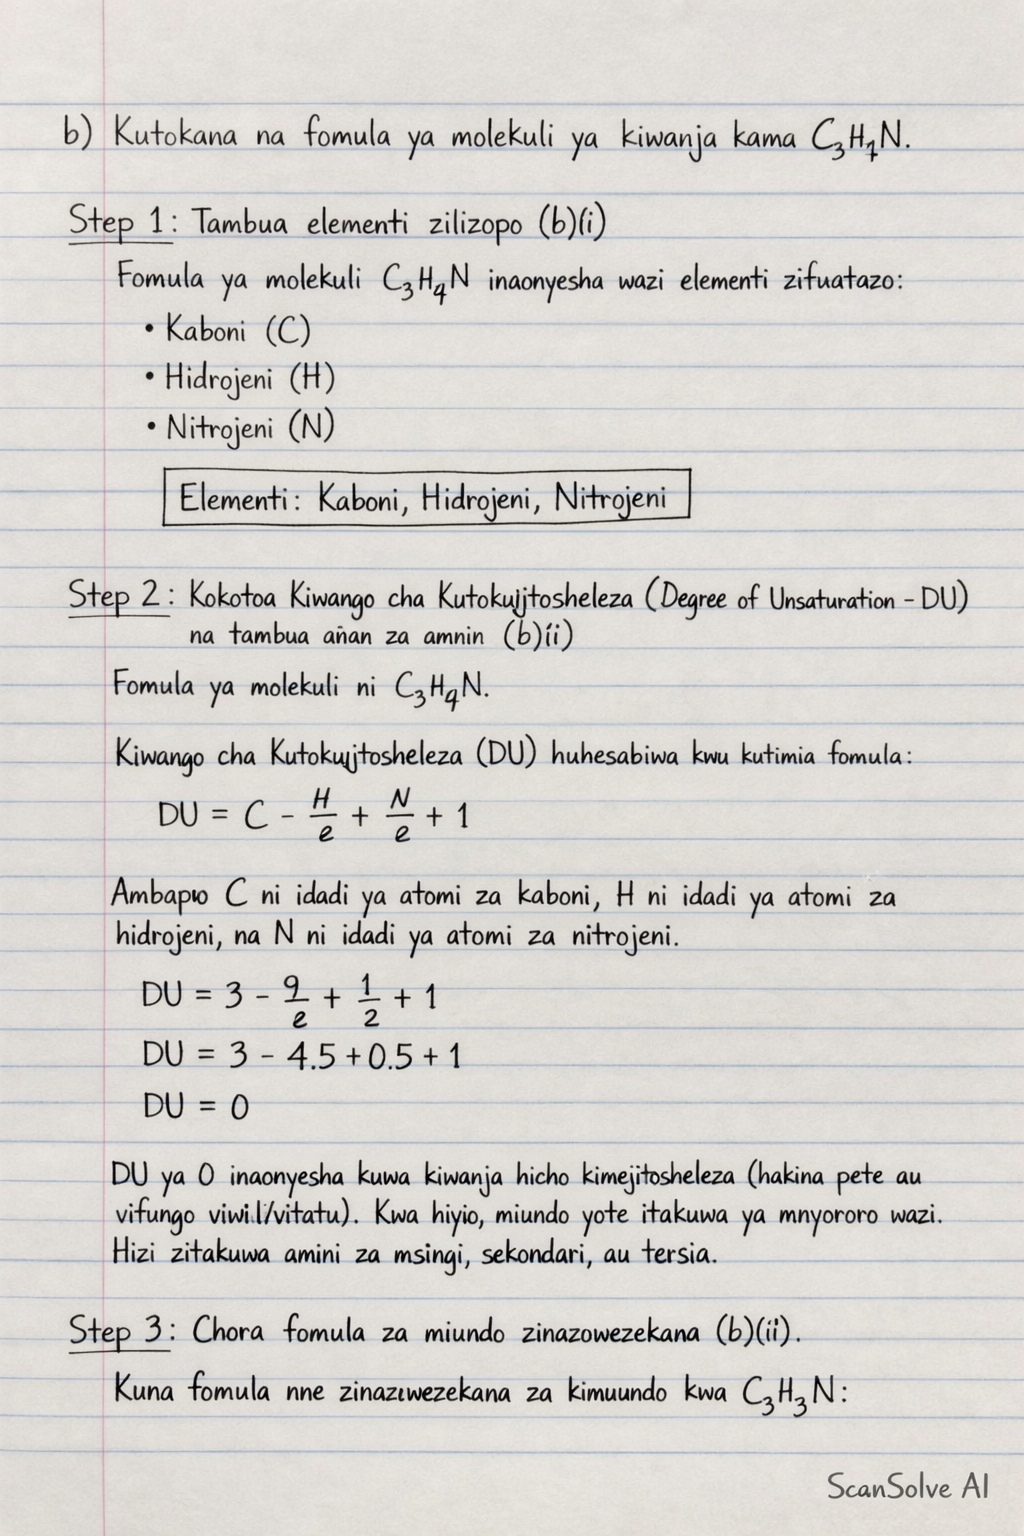 b) Kutokana na fomula ya molekuli ya kiwanja kama C₃H₄N.
Step 1: Tambua elementi zilizopo (b)(i)
Fomula ya molekuli C₃H₄N inaonyesha wazi elementi zifuatazo:
• Kaboni (C)
• Hidrojeni (H)
• Nitrojeni (N)
Elementi: Kaboni, Hidrojeni, Nitrojeni
Step 2: Kokotoa Kiwango cha Kutokujjtosheleza (Degree of Unsaturation - DU)
na tambua añan za amnin (b)íi)
Fomula ya molekuli ni C₃H₄N.
Kiwango cha Kutokujjtosheleza (DU) huhesabiwa kwu kutimia fomula:
DU = C - H/e + N/e + 1
C ni idadi ya atomi za kaboni, H ni idadi ya atomi za
hidrojeni, na N ni idadi ya atomi za nitrojeni.
DU = 3 - 9/e + 1/2 + 1
DU = 3 - 4.5 + 0.5 + 1
DU = 0
DU ya 0 inaonyesha kuwa kiwanja hicho kimejitosheleza (hakina pete au
vifungo viwi.l/vitatu). Kwa hiyio, miundo yote itakuwa ya mnyororo wazi.
Hizi zitakuwa amini za msingi, sekondari, au tersia.
Step 3: Chora fomula za miundo zinazowezekana (b)(ii).
Kuna fomula nne za kimuundo kwa C₃H₃N:
ScanSolve AI